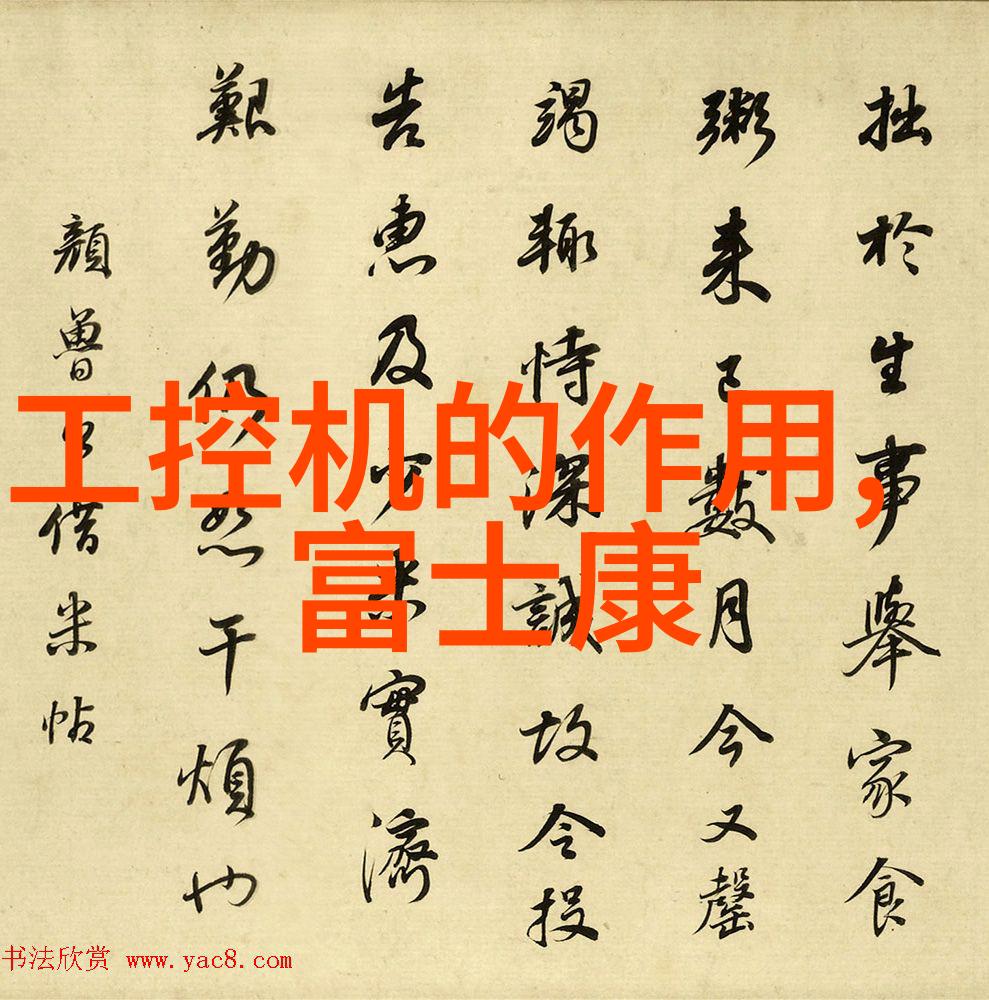 拙於生事舉家食
粥来已數月今又罄
竭輒恃深誠故令投
告惠及少米實濟
艱勤仍恕干煩也
顔魯公借米帖
工控机的作用,
富士康
书法欣赏 www.yac8.com